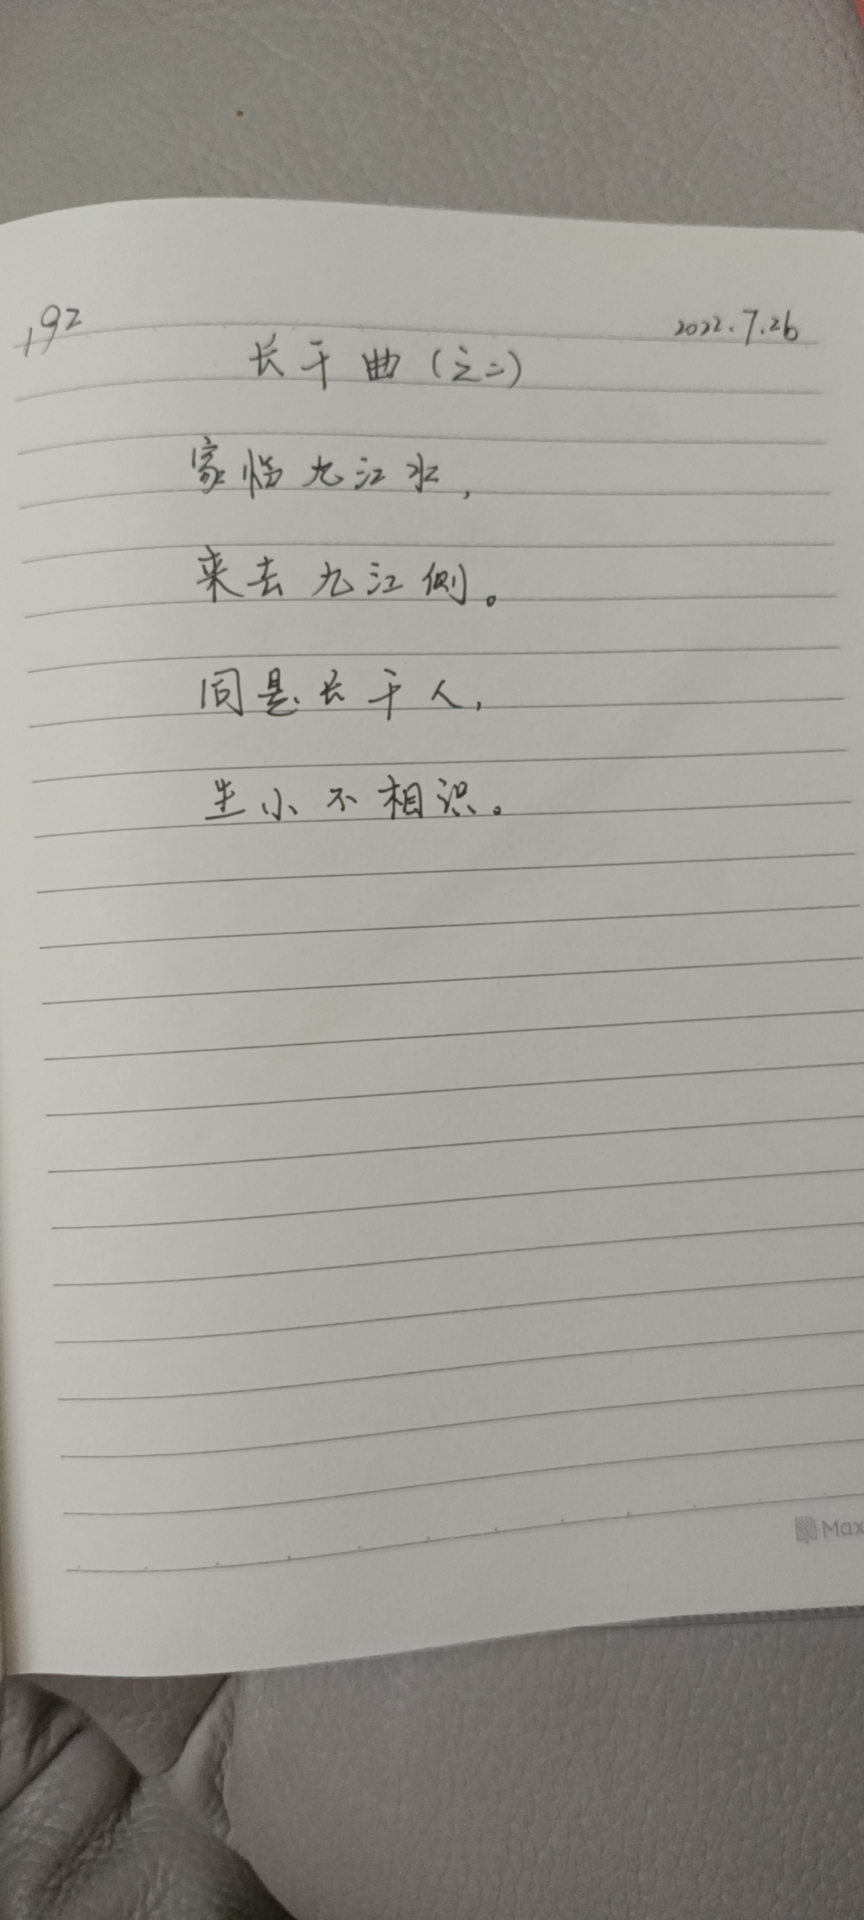 192
2022.7.26
长干曲（之二）
家临九江水，
来去九江侧。
同是长干人，
生小不相识。
Max